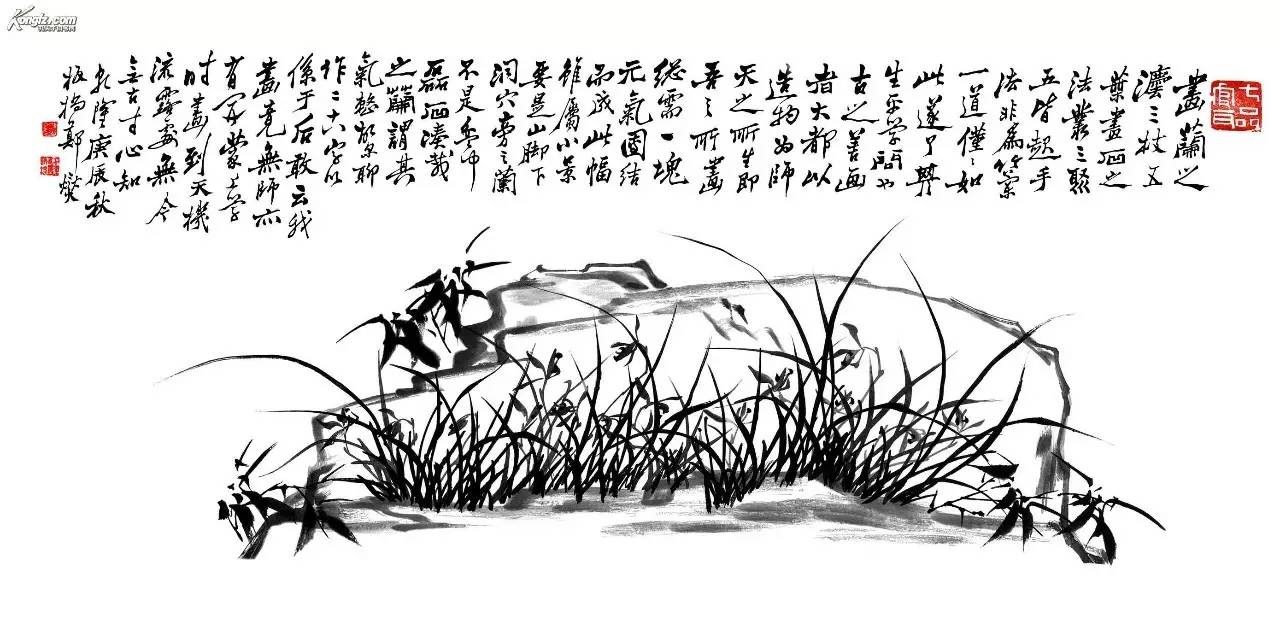 畫蘭之
灋三枝五
葉畫石之
法叢三聚
五皆起手
法非為
一道僅僅如
此遂了其
生平學問也
古之善画
者大都以
造物為師
天之所生即
吾之所畫
総需一塊
元氣團結
而成此幅
雖屬小景
要是山脚下
洞穴旁之蘭
不是盆中
磊石湊栽
之蘭謂其
氣整尔聊
作二十八字以
係于后敢云我
畫竟無師亦
有開蒙上學
時畫到天機
流露處無今
無古寸心知
乾隆庚辰秋
板橋鄭燮
七品官耳
Kongfz.com